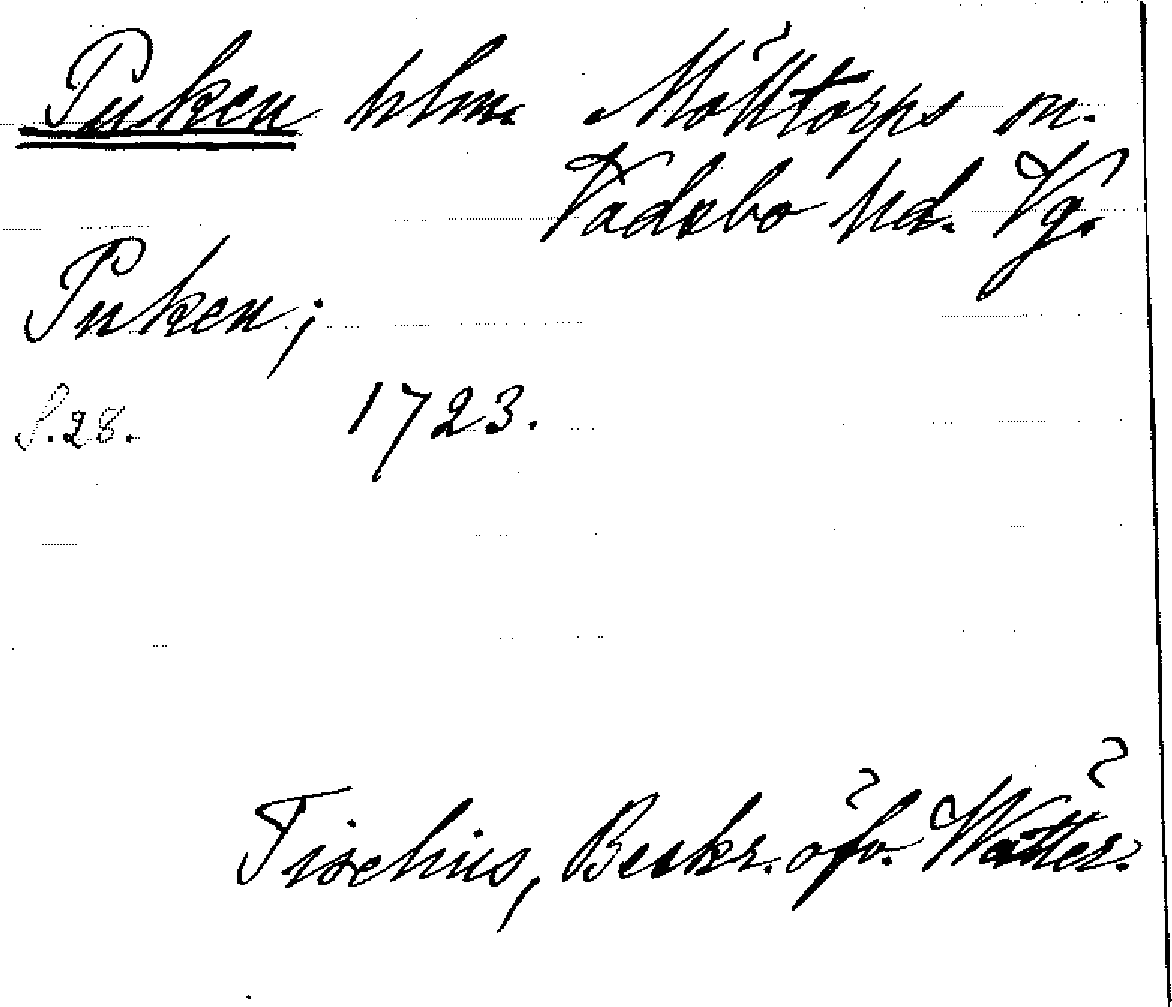 Puken hlm. Mölltorps sn.
Vadsbo hd. Vg.
Puken;
S. 28. 1723.
Tiselius, Beskr. öfv. Wätter.